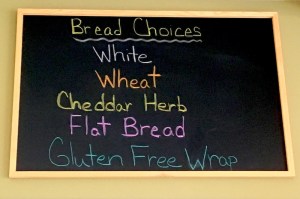 Bread Choices
White
Wheat
Cheddar Herb
Flat Bread
Gluten Free Wrap